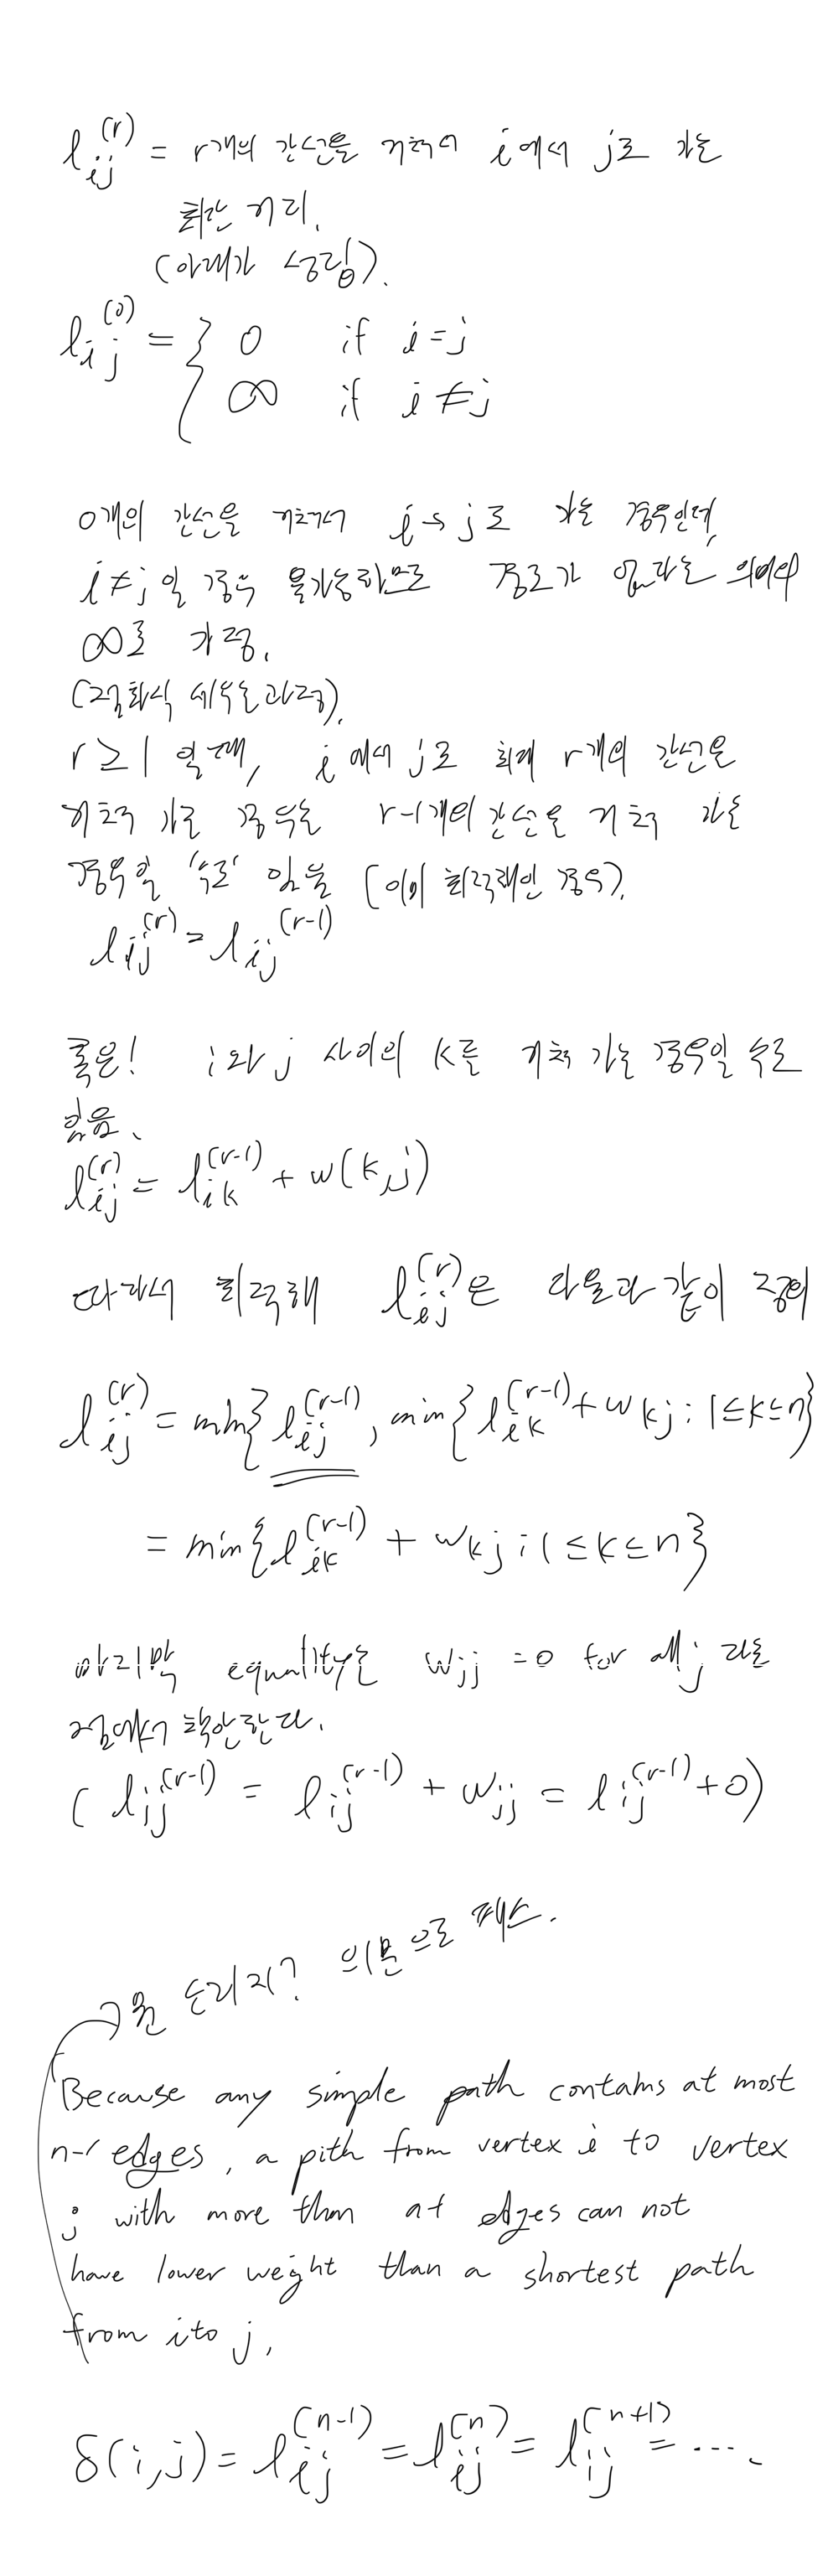 l_{ij}^{(r)} = r개의 간선을 거쳐서 i에서 j로 가는
최단 거리.
(아래가 성립).
l_{ij}^{(0)} = { 0 if i=j
∞ if i≠j
0개의 간선을 거쳐서 i→j로 가는 경우인데,
i≠j일 경우 불가능하므로 경로가 없다는 의미의
∞로 가정.
(점화식 세우는 과정).
r≥1 일 때, i에서 j로 최대 r개의 간선을
거쳐 가는 경우는 r-1개의 간선을 거쳐 가는
경우일 '수도' 있음 (이미 최적해인 경우).
l_{ij}^{(r)} = l_{ij}^{(r-1)}
혹은! i와 j 사이의 k를 거쳐 가는 경우일 수도
있음.
l_{ij}^{(r)} = l_{ik}^{(r-1)} + w(k,j)
따라서 최적해 l_{ij}^{(r)}은 다음과 같이 정의
l_{ij}^{(r)} = min{l_{ij}^{(r-1)}, min{l_{ik}^{(r-1)} + w_{kj} : 1≤k≤n}
= min{l_{ik}^{(r-1)} + w_{kj} : 1≤k≤n}
마지막 equality는 w_{jj} = 0 for all j 라는
점에서 착안한다.
( l_{ij}^{(r-1)} = l_{ij}^{(r-1)} + w_{jj} = l_{ij}^{(r-1)} + 0)
소리지? 의문으로 패스.
Because any simple path contains at most
n-1 edges, a path from vertex i to vertex
j with more than at edges can not
have lower weight than a shortest path
from i to j,
δ(i,j) = l_{ij}^{(n-1)} = l_{ij}^{(n)} = l_{ij}^{(n+1)} = ....